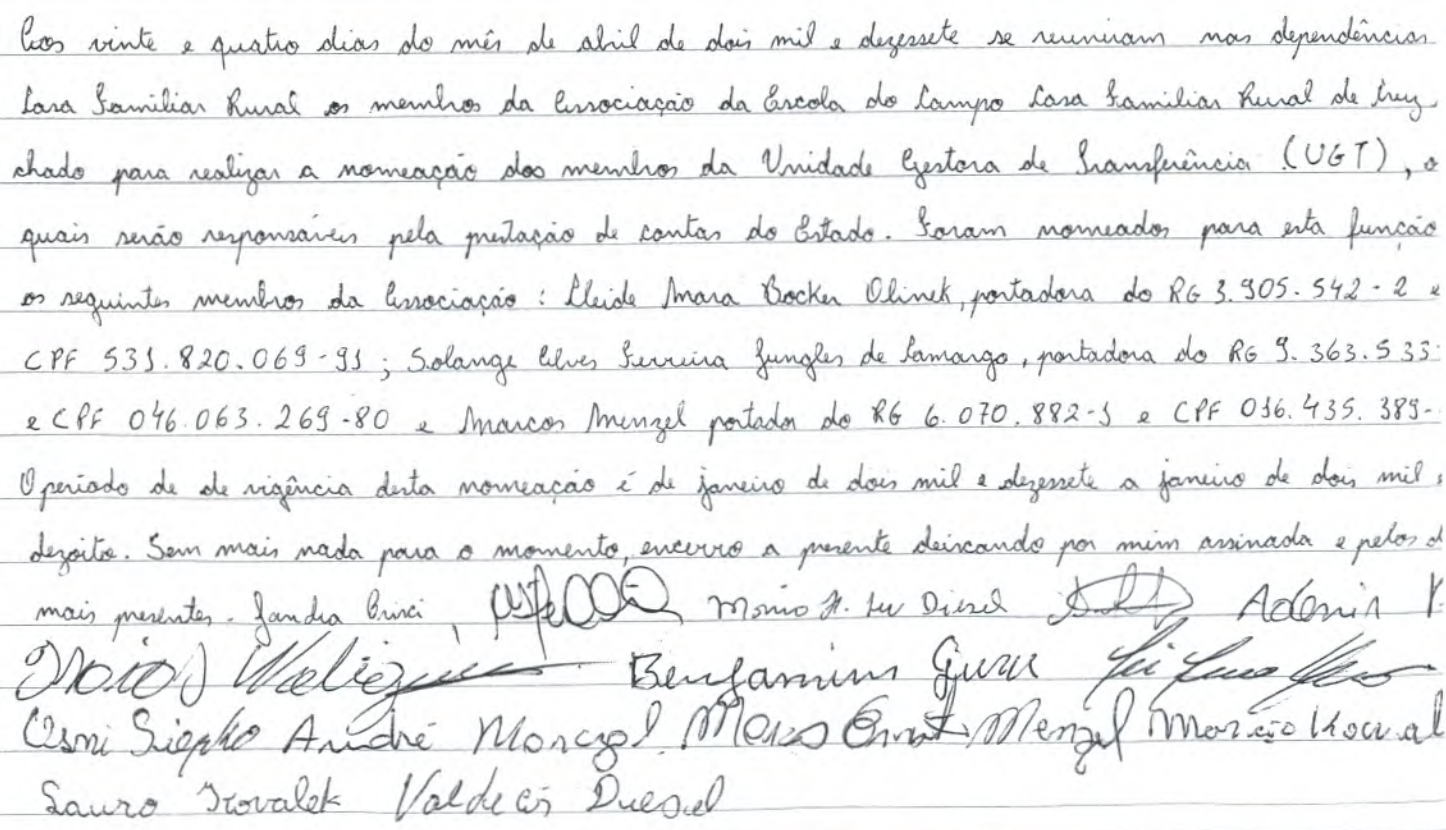 Aos vinte e quatro dias do mês de abril de dois mil e dezessete se reuniram nas dependências
Casa Familiar Rural os membros da Associação da Escola do Campo Casa Familiar Rural de Cruz
chado para realizar a nomeação dos membros da Unidade Gestora de Transferência (UGT), o
quais serão responsáveis pela prestação de contas do Estado. Foram nomeados para esta função
os seguintes membros da Associação: Cleide Mara Bocker Olinek, portadora do RG 3.905.542-2 e
CPF 531.820.069-91; Solange Alves Ferreira Jungles de Camargo, portadora do RG 9.363.533-
e CPF 046.063.269-80 e Marcos Menzel portador do RG 6.070.882-1 e CPF 016.435.389-
O periodo de de vigência desta nomeação é de janeiro de dois mil e dezessete a janeiro de dois mil e
dezoito. Sem mais nada para o momento, encerro a presente deixando por mim assinada e pelos d
mais presentes. Diesel
Benjamim
André Menzel
Lauro Kovalek Valdecis